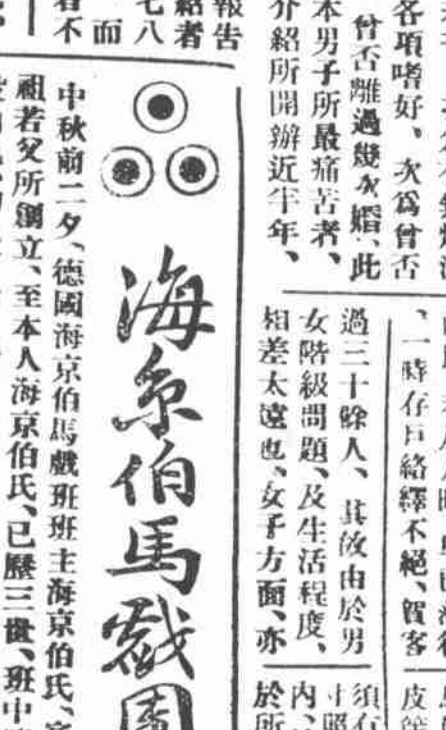 各項嗜好、次爲曾否
曾否離過幾次婚、此
本男子所最痛苦者、
介紹所開辦近半年、
、一時存戶絡繹不絕、賀客
過三十餘人、其故由於男
女階級問題、及生活程度、
相差太遠也、女子方面、亦
須有
內、
於所
報告
紹者
七八
而
者不
海京伯馬戲團
中秋前二夕、德國海京伯馬戲班班主海京伯氏、宴
祖若父所創立、至本人海京伯氏、已歷三世、班中